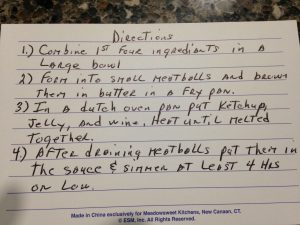 Directions
1.) Combine 1st four ingredients in a
Large bowl
2) Form into small meatballs and brown
them in butter in a fry pan.
3) In a dutch oven pan put ketchup,
Jelly, and wine. Heat until melted
together.
4) After draining meatballs put them in
the sauce & simmer at least 4 hrs
on low.
Made in China exclusively for Meadowsweet Kitchens, New Canaan, CT.
© ESM, Inc. All Rights Reserved.